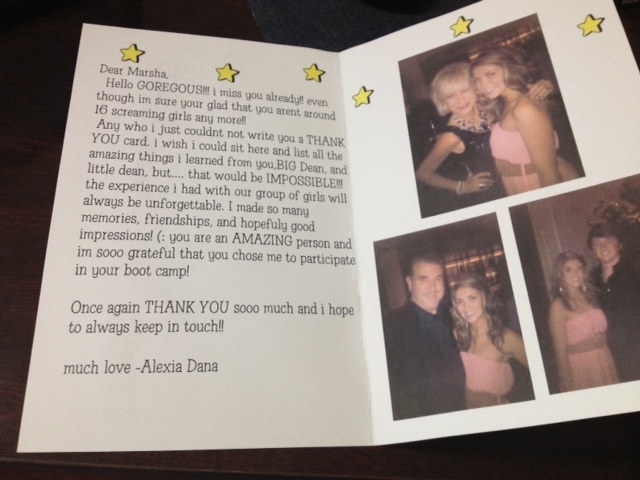 Dear Marsha,
Hello GOREGOUS!!! i miss you already!! even
though im sure your glad that you arent around
16 screaming girls any more!!
Any who i just couldnt not write you a THANK
YOU card. i wish i could sit here and list all the
amazing things i learned from you,BIG Dean, and
little dean, but.... that would be IMPOSSIBLE!!!
the experience i had with our group of girls will
always be unforgettable. I made so many
memories, friendships, and hopefuly good
impressions! (: you are an AMAZING person and
im sooo grateful that you chose me to participate
in your boot camp!
Once again THANK YOU sooo much and i hope
to always keep in touch!!
much love -Alexia Dana